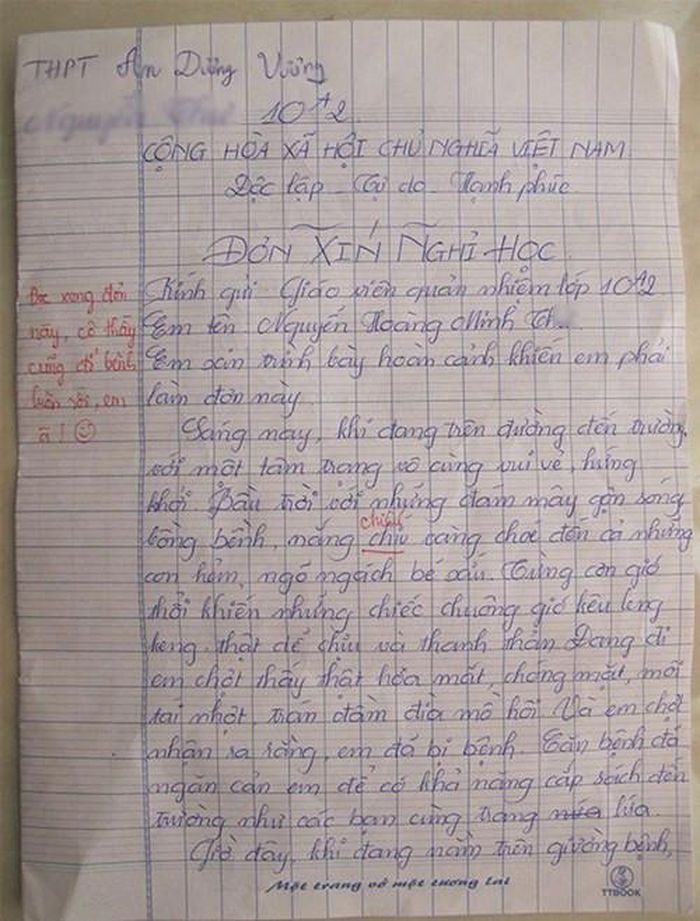 THPT An Dương Vương
10A2
CỘNG HÒA XÃ HỘI CHỦ NGHĨA VIỆT NAM
Độc lập - Tự do - Hạnh phúc
ĐƠN XIN NGHỈ HỌC
Kính gửi Giáo viên quản nhiệm lớp 10A2
Em tên Nguyễn Hoàng Minh Th...
Em xin trình bày hoàn cảnh khiến em phải
làm đơn này
Sáng nay, khi đang trên đường đến trường,
với một tâm trạng vô cùng vui vẻ, hứng
khởi. Bầu trời với những đám mây gợn sóng
bồng bềnh, nắng chíu vàng choé đến cả những
chiếu
con hẻm, ngó ngách bé xíu. Từng cơn gió
thổi khiến những chiếc chuông gió kêu leng
keng, thật dễ chịu và thanh thản. Đang đi
em chợt thấy thật hoa mắt, chóng mặt, môi
tái nhợt, trán đầm đìa mồ hôi. Và em chợt
nhận ra rằng, em đã bị bệnh. Căn bệnh đã
ngăn cản em để có khả năng cắp sách đến
trường như các bạn cùng trang lứa.
Giờ đây, khi đang nằm trên giường bệnh,
Đọc xong đơn
này, cô thấy
cũng đổ bệnh
luôn rồi, em
ạ! ☺
Một trang vở một tương lai
TTBOOK